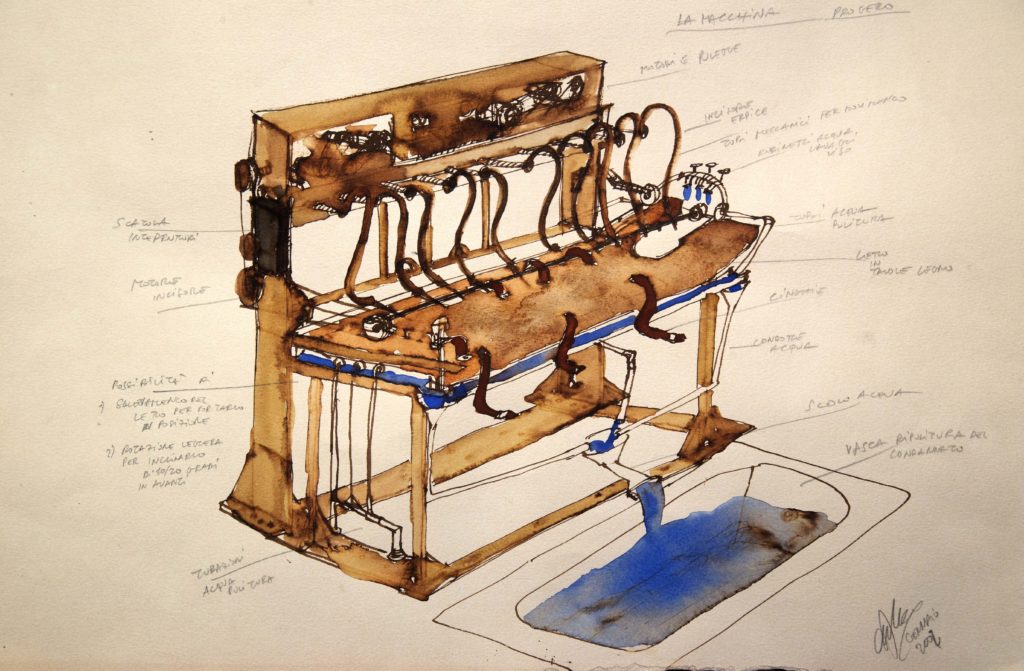 LA MACCHINA PROGETTO
MOTORI E PULEGGE
INCISORE
ERPICE
TUBI MECCANICI PER MOVIMENTO
RUBINETTI ACQUA
TUBI ACQUA
PULITURA
LETTO
IN
TAVOLE LEGNO
CINGHIE
CONDOTTE
ACQUA
SCOLO ACQUA
VASCA RIPULITURA DEL
CONDANNATO
SCATOLA
INTERRUTTORI
MOTORE
INCISORE
POSSIBILITÀ DI
1)
LETTO PER PORTARLO
IN POSIZIONE
2) ROTAZIONE LEGGERA
PER INCLINARLO
DI 10/20 GRADI
IN AVANTI
TUBAZIONI
ACQUA
PULITURA
GENNAIO